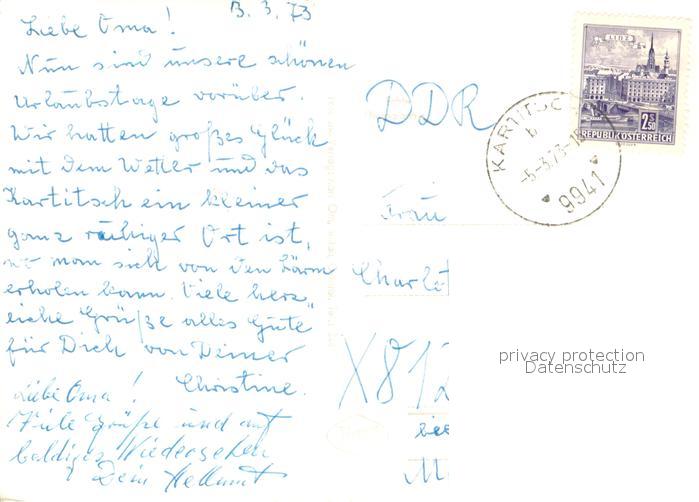 3.3.73
Liebe Oma!
Nun sind unsere schönen
Urlaubstage vorüber.
Wir hatten großes Glück
mit dem Wetter und das
Kartitsch ein kleiner
ganz ruhiger Ort ist,
wo man sich von den Lärm
erholen kann. Viele herz„
liche Grüße alles Gute
für Dich von Deiner
Christine.
Liebe Oma!
Viele Grüße und auf
baldiges Wiedersehen
Dein Hellmut
LINZ
2.50
REPUBLIK ÖSTERREICH
KARTITSC
b
-5.-3.73-1
9941
DDR
Frau
Charlot
X812
bee
M
privacy protection
Datenschutz